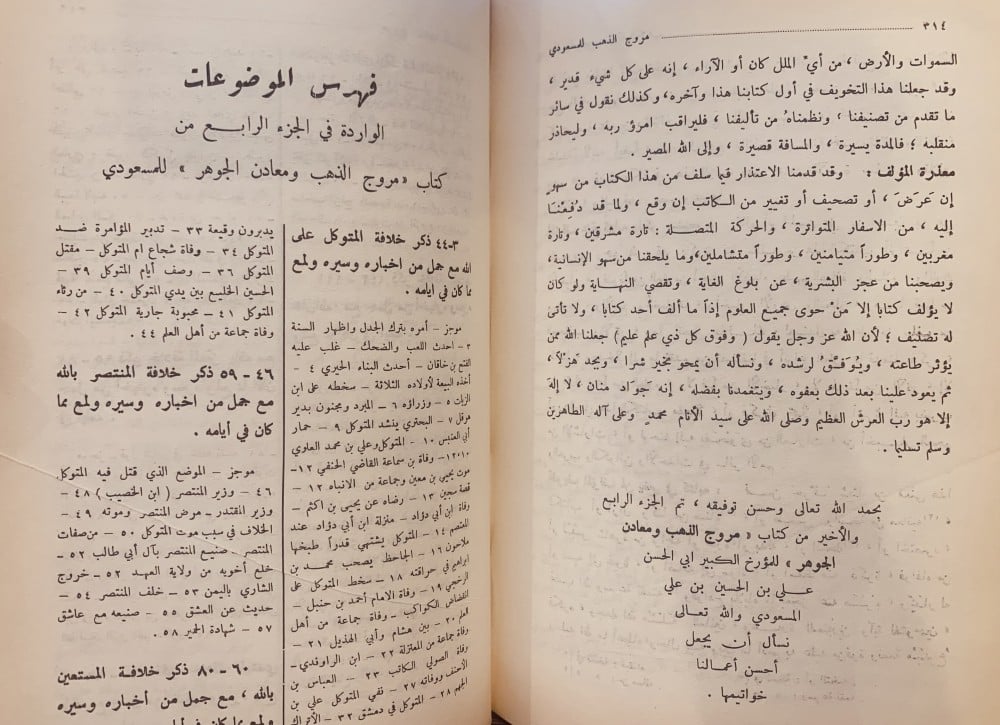 ٣١٤ مروج الذهب للمسعودي
السموات والأرض ، من أيّ الملل كان أو الآراء ، إنه على كل شيء قدير ،
وقد جعلنا هذا التخويف في أول كتابنا هذا وآخره، وكذلك نقول في سائر
ما تقدم من تصنيفنا ، ونظمناه من تأليفنا ، فليراقب امرؤ ربه ، وليحاذر
منقلبه ؛ فالمدة يسيرة ، والمسافة قصيرة ، وإلى الله المصير .
معذرة المؤلف : وقد قدمنا الاعتذار فيما سلف من هذا الكتاب من سهوٍ
إن عَرَضَ ، أو تصحيف أو تغيير من الكاتب إن وقع ، ولما قد دُفِعْنَا
إليه ، من الاسفار المتواترة ، والحركة المتصلة : تارة مشرقين ، وتارة
مغربين ، وطوراً متيامنين ، وطوراً متشاملين، وما يلحقنا من سهو الإنسانية،
ويصحبنا من عجز البشرية ، عن بلوغ الغاية ، وتقصي النهاية ولو كان
لا يؤلف كتابا إلا مَنْ حوى جميع العلوم إذاً ما ألف أحد كتابا ، ولا تأتى
له تصنيف ؛ لأن الله عز وجل يقول ( وفوق كل ذي علم عليم) جعلنا الله ممن
يؤثر طاعته ، ويُوَفَّقُ لرشده ، ونسأله أن يمحو بخير شرا ، وبجد هَزْلاً ،
ثم يعود علينا بعد ذلك بعفوه ، ويتغمدنا بفضله ، إنه جَوَاد منان ، لا إله
إلا هو ربُّ العرش العظيم وصلى الله على سيد الأنام محمدٍ وعلى آله الطاهرين
وسلم تسليما .
بحمد الله تعالى وحسن توفيقه ، تم الجزء الرابع
والأخير من كتاب « مروج الذهب ومعادن
الجوهر ، للمؤرخ الكبير ابي الحسن
علي بن الحسين بن علي
المسعودي والله تعالى
نسأل أن يجعل
أحسن أعمالنا
خواتيمها .
فهرس الموضوعات
الواردة في الجزء الرابع من
كتاب « مروج الذهب ومعادن الجوهر » للمسعودي
٣-٤٤ ذكر خلافة المتوكل على
الله مع جمل من اخباره وسيره ولمع
مما كان في ايامه .
موجز - أمره بترك الجدل واظهار السنة
٣ - احدث اللعب والضحك - غلب عليه
الفتح بن خاقان - أحدث البناء الحيري ٤ -
أخذه البيعة لأولاده الثلاثة - سخطه على ابن
الزيات ٥ - وزراؤه ٦ - المبرد ومجنون بدير
هرقل ٧ - البحتري ينشد المتوكل ٩ - حمار
أبي العنبس ١٠ - المتوكل وعلي بن محمد العلوي
١٠-١٢ - وفاة بن سماعة القاضي الحنفي ١٢-
موت يحيى بن معين وجماعة من الانباه ١٢ -
قصة سجين ١٣ - رضاه عن يحيى بن اكثم -
وفاة ابن أبي دؤاد - منزلة ابن أبي دؤاد عند
المعتصم ١٤ - المتوكل يشتهي قدراً طبخها
ملاحون ١٦ - الجاحظ يصحب محمد بن
ابراهيم في حراقته ١٨ - سخط المتوكل على
الرخجي ١٩ - وفاة الامام أحمد بن حنبل -
انقضاض الكواكب - وفاة جماعة من أهل
العلم ٢٠ - بين هشام وأبي الهذيل ٢١ -
وفاة جماعة من المعتزلة ٢٢ - ابن الراوندي -
وفاة الصولي الكاتب ٢٣ - العباس بن
الأحنف ووفاته ٢٧ - نفي المتوكل علي بن
الجهم ٢٨ - المتوكل في دمشق ٣٢ - الأتراك
يدبرون وقيعة ٣٣ - تدبير المؤامرة ضد
المتوكل ٣٤ - وفاة شجاع ام المتوكل - مقتل
المتوكل ٣٦ - وصف أيام المتوكل ٣٩ -
الحسين الخليع بين يدي المتوكل ٤٠ - من رثاء
المتوكل ٤١ - محبوبة جارية المتوكل ٤٢ -
وفاة جماعة من أهل العلم ٤٤ .
٤٦ - ٥٩ ذكر خلافة المنتصر بالله
مع جمل من اخباره وسيره ولمع مما
كان في أيامه .
موجز - الموضع الذي قتل فيه المتوكل
٤٦ - وزير المنتصر ( ابن الخصيب ) ٤٨ -
وزير المقتدر - مرض المنتصر وموته ٤٩ -
الخلاف في سبب موت المتوكل ٥٠ - من صفات
المنتصر - صنيع المنتصر بآل أبي طالب ٥٢ -
خلع أخويه من ولاية العهد ٥٢ - خروج
الشاري باليمن ٥٣ - خلف المنتصر ٥٤ -
حديث عن العشق ٥٥ - صنيعه مع عاشق
٥٧ - شهادة الحمير ٥٨ .
٦٠ - ٨٠ ذكر خلافة المستعين
بالله ، مع جمل من أخباره وسيره
ولمع مما كان في